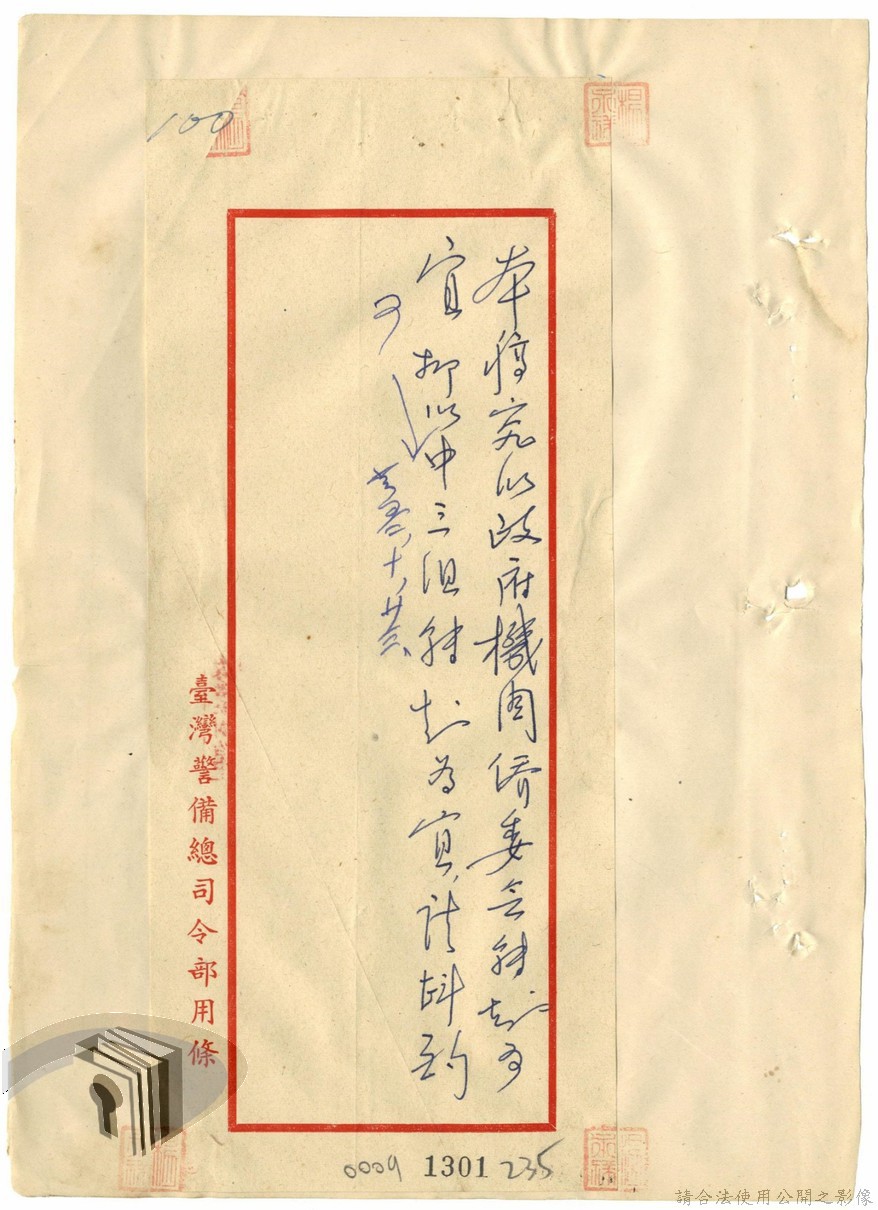 100
本稿究以政府機関僑委会轉知為
宜抑以中三組轉知為宜,請斟酌
臺灣警備總司令部用條
0009 1301 235
請合法使用公開之影像